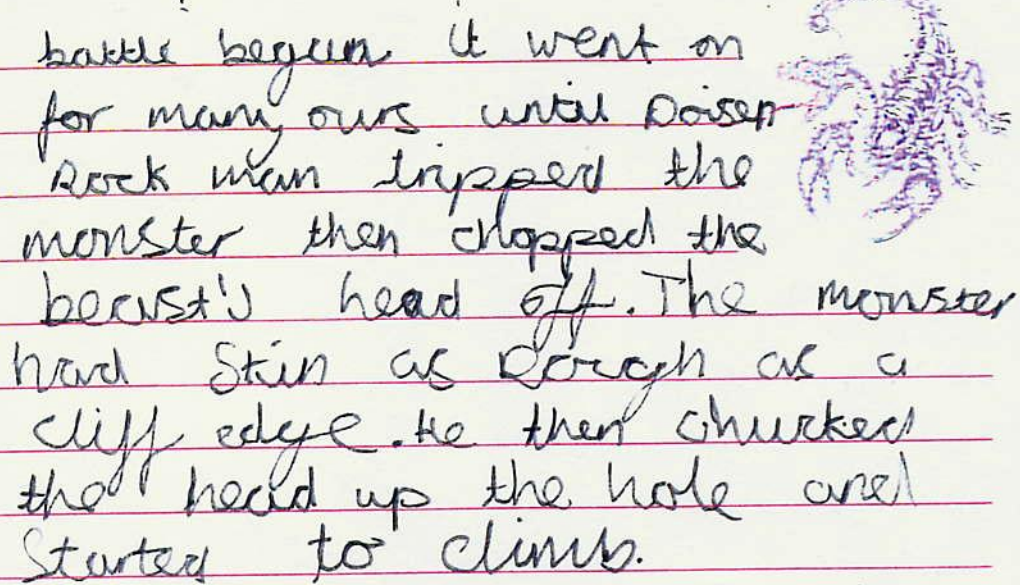 battle begun it went on
for many ours until Poisen
Rock man tripped the
monster then chopped the
beast's head off. The monster
had Skin as Rough as a
cliff edge. He then chucked
the head up the hole and
Started to climb.